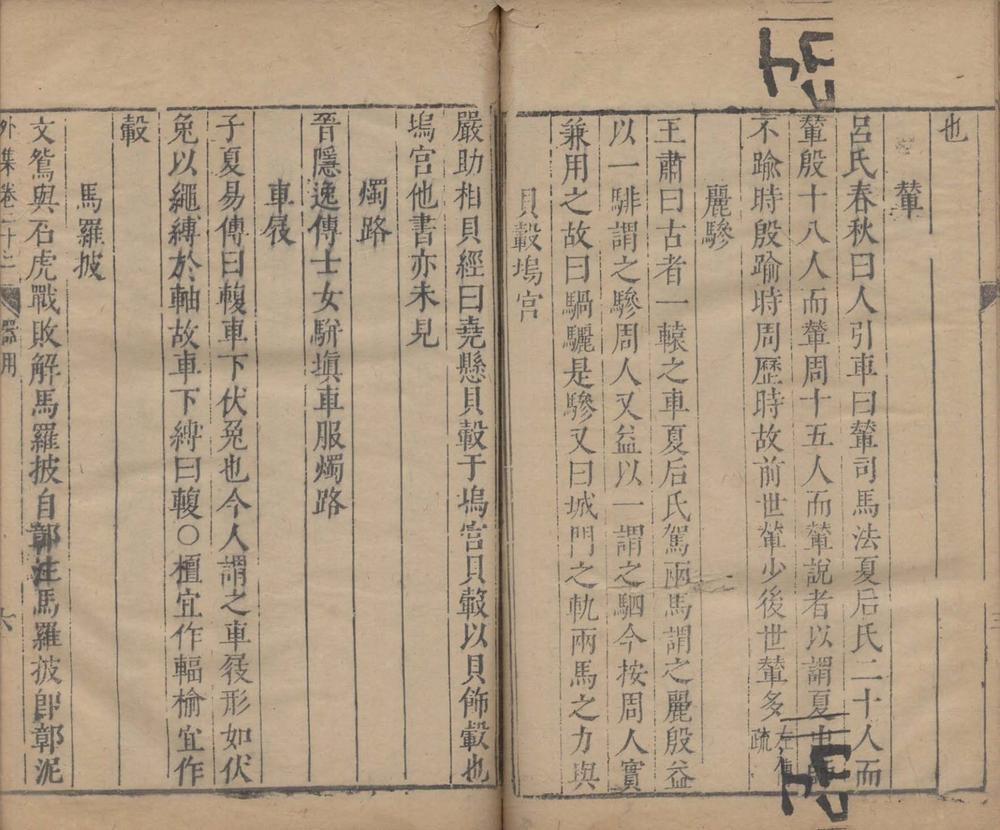 也
輦
呂氏春秋曰人引車曰輦司馬法夏后氏二十人而
輦殷十八人而輦周十五人而輦說者以謂夏
不踰時殷踰時周歷時故前世輦少後世輦多左傳疏
麗驂
王肅曰古者一轅之車夏后氏駕兩馬謂之麗殷益
以一騑謂之驂周人又益以一謂之駟今按周人實
兼用之故曰騧驪是驂又曰城門之軌兩馬之力與
貝轂塢宫
嚴助相貝經曰堯懸貝轂于塢宫貝轂以貝飾轂也
塢宫他書亦未見
燭路
晉隱逸傳士女駢塡車服燭路
車屐
子夏易傳曰輹車下伏兔也今人謂之車屐形如伏
兔以繩縛於軸故車下縛曰輹○檀宜作輻榆宜作
轂
馬羅披
文鴦與石虎戰敗解馬羅披自鄣注馬羅披卽鄣泥
外集卷二十二 器用 六